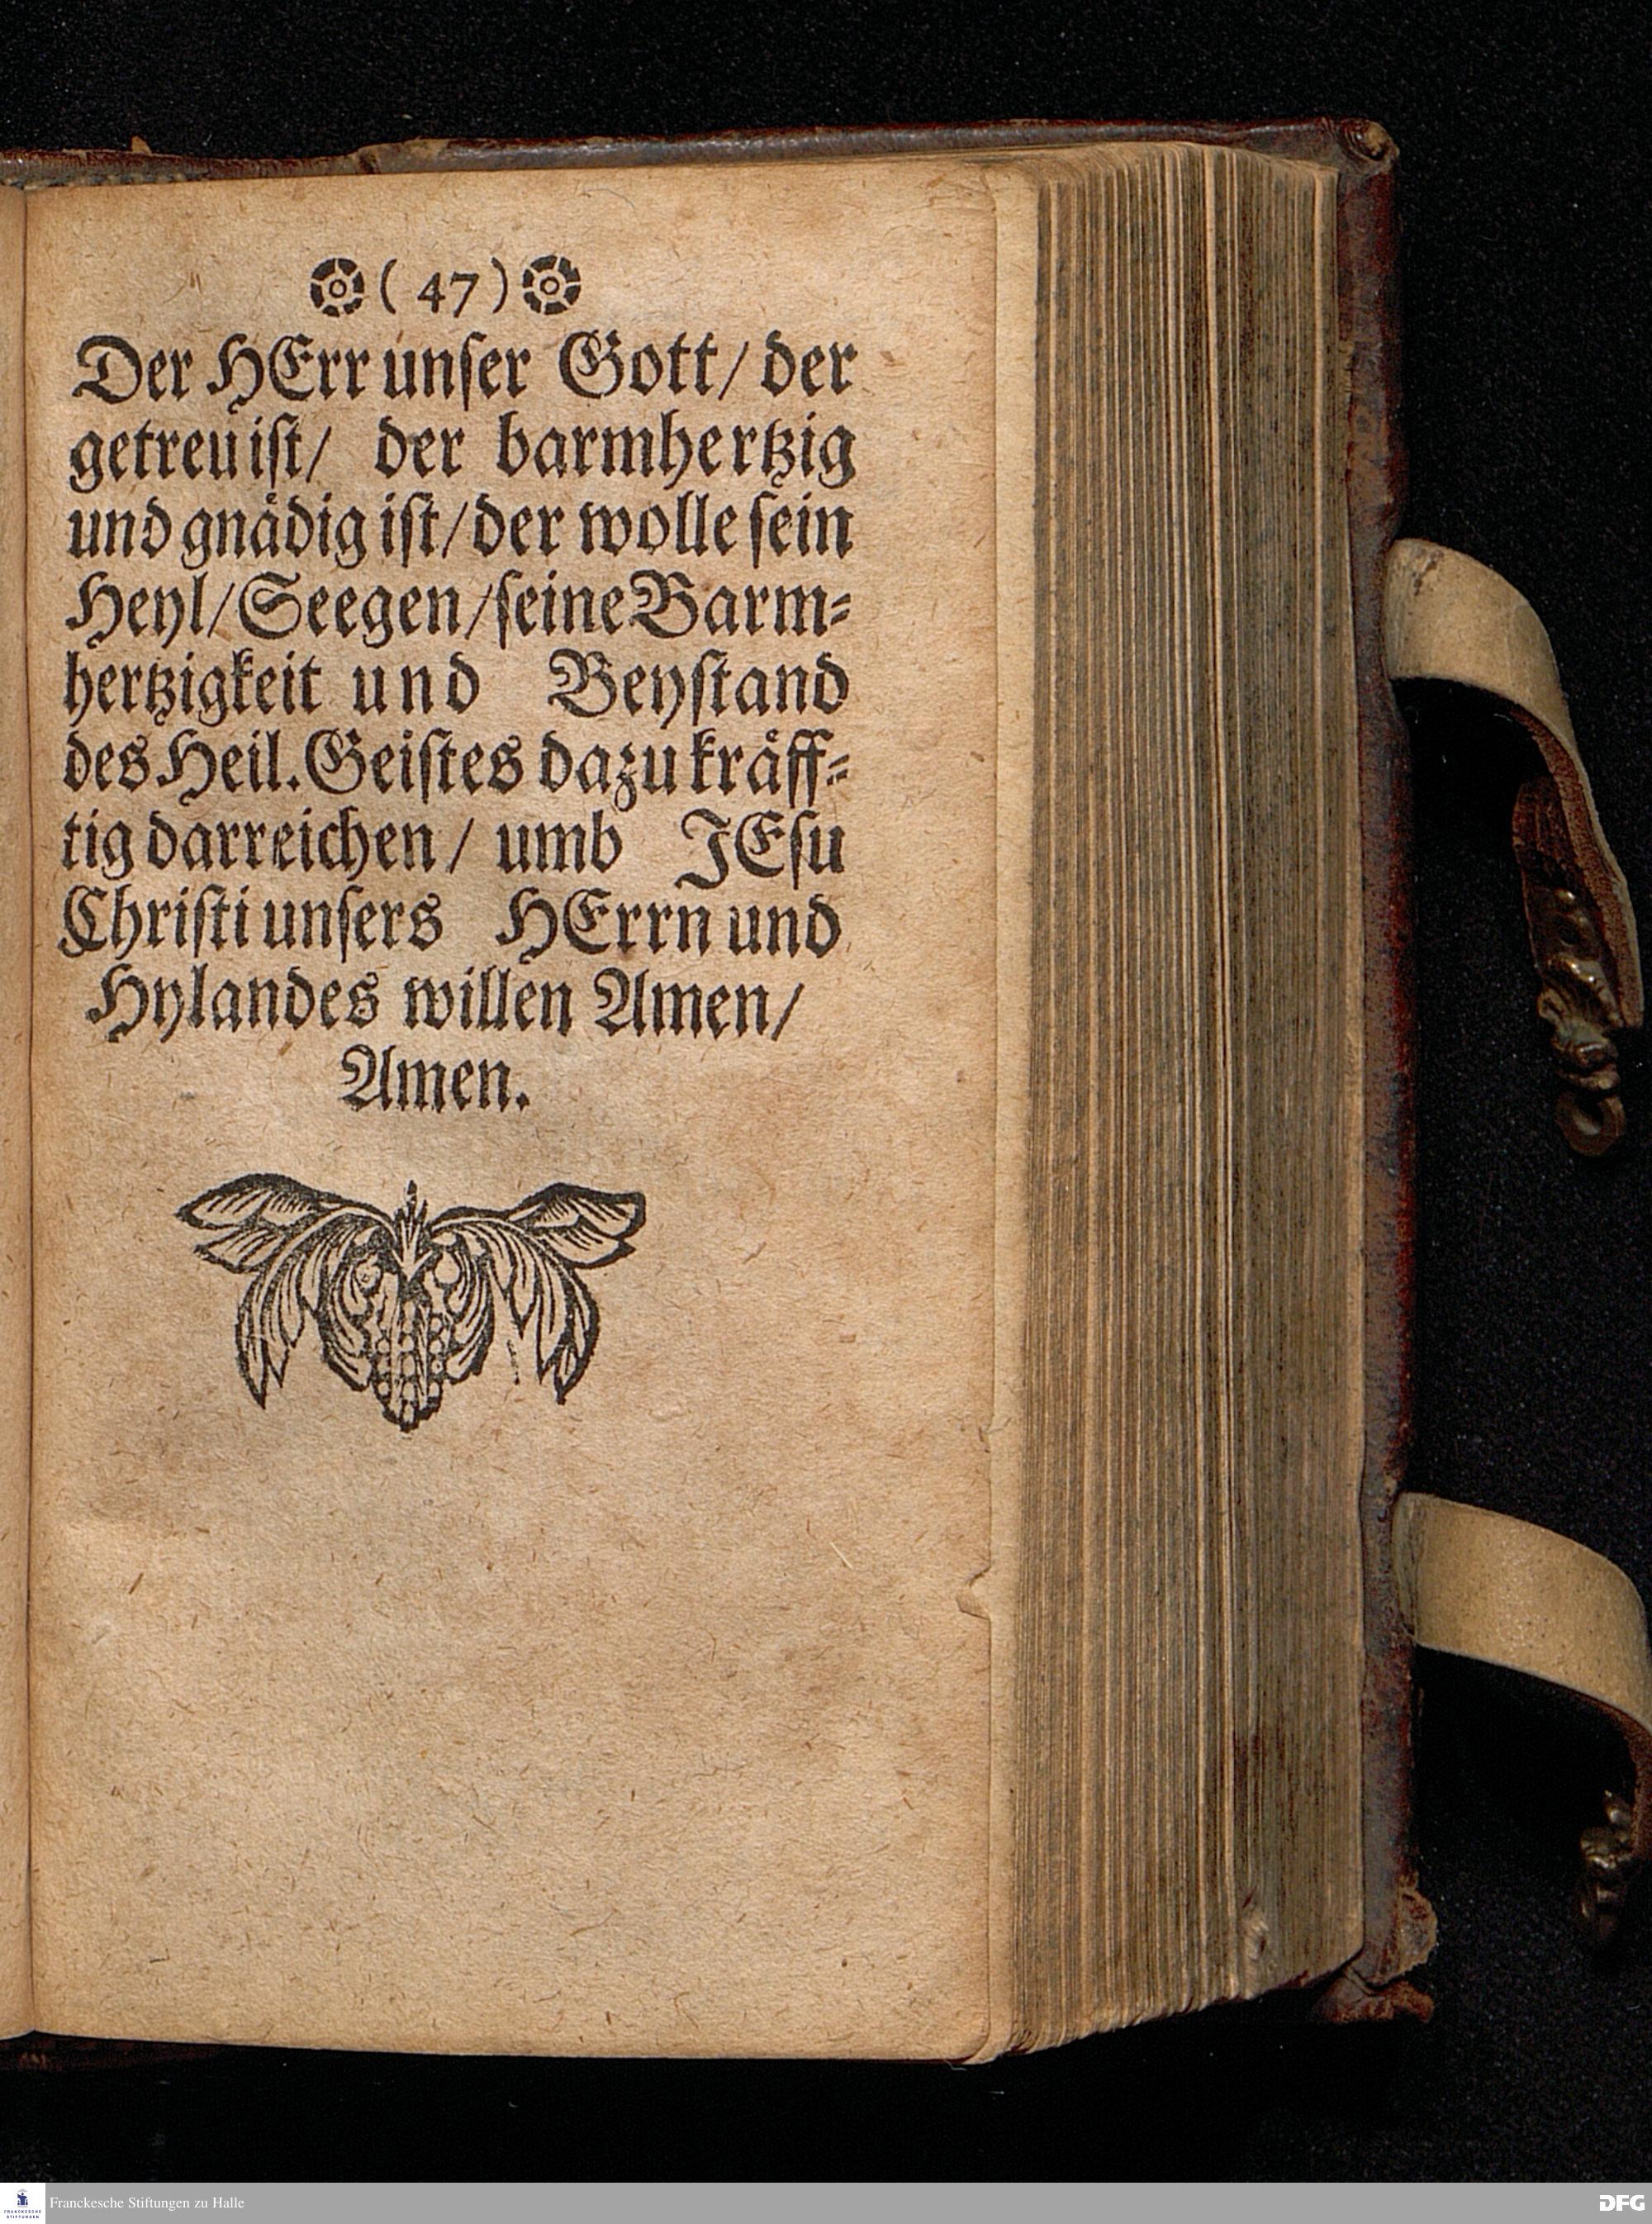 ( 47 )
Der HErr unſer Gott/ der
getreu iſt/ der barmhertzig
und gnaͤdig iſt/ der wolle ſein
Heyl/ Seegen/ ſeine Barm⸗
hertzigkeit und Beyſtand
des Heil. Geiſtes dazu kraͤff⸗
tig darreichen/ umb JEſu
Chriſti unſers HErrn und
Hylandes willen Amen/
Amen.
Franckesche Stiftungen zu Halle
FRANCKESCHE
STIFTUNGEN
DFG